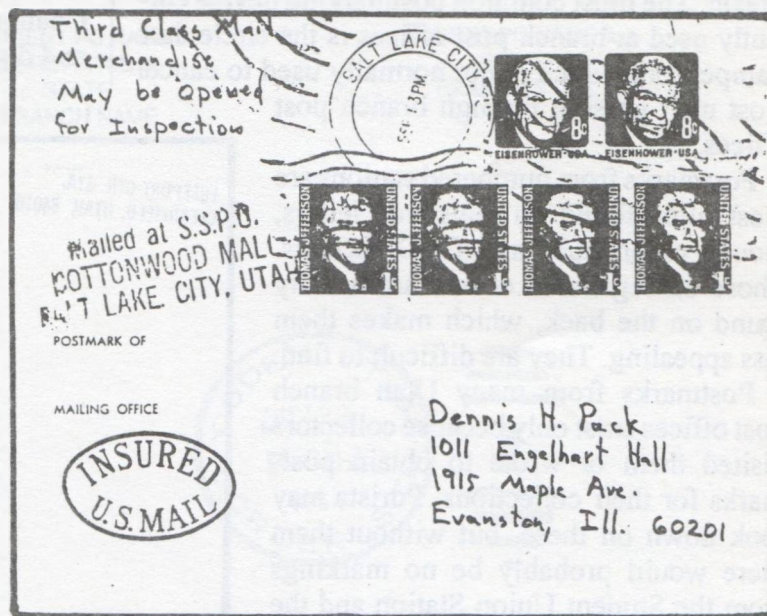 Third Class Mail
Merchandise
May be Opened
for Inspection
SALT LAKE CITY
SEP
PM
EISENHOWER·USA
8c
EISENHOWER·USA
8c
THOMAS JEFFERSON
UNITED STATES
1c
THOMAS JEFFERSON
UNITED STATES
1c
THOMAS JEFFERSON
UNITED STATES
1c
THOMAS JEFFERSON
UNITED STATES
1c
Mailed at S.S.P.O.
COTTONWOOD MALL
SALT LAKE CITY, UTAH
POSTMARK OF
MAILING OFFICE
INSURED
U.S. MAIL
Dennis H. Pack
1011 Engelhart Hall
1915 Maple Ave.
Evanston, Ill. 60201